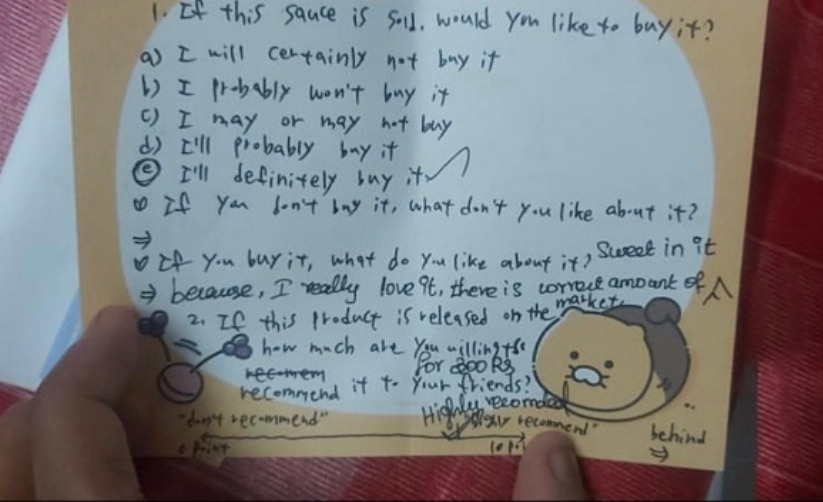 1. If this sauce is sold, would you like to buy it?
a) I will certainly not buy it
b) I probably won't buy it
c) I may or may not buy
d) I'll probably buy it
e) I'll definitely buy it ✓
If you don't buy it, what don't you like about it?
⇒
If you buy it, what do you like about it?
⇒ because, I really love it, there is correct amount of sweet in it
2. If this product is released on the market,
how much are you willing to
for 200 Rs
recommend it to your friends?
Highly recommended
"don't recommend" recommend"
0 point 10 poi
behind
⇒